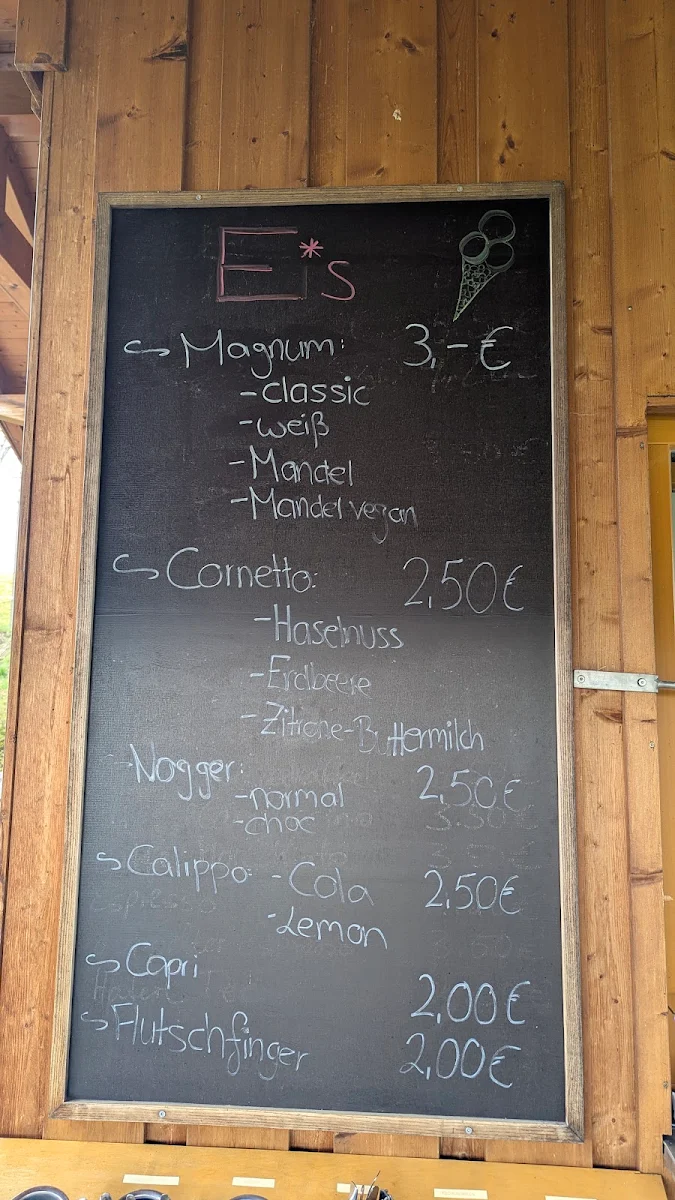 E*s
Magnum: 3,- €
- classic
- weiß
- Mandel
- Mandel vegan
Cornetto: 2,50€
- Haselnuss
- Erdbeere
- Zitrone-Buttermilch
Nogger: 2,50€
- normal
- choc
Calippo: - Cola 2,50€
- Lemon
Capri 2,00€
Flutschfinger 2,00€